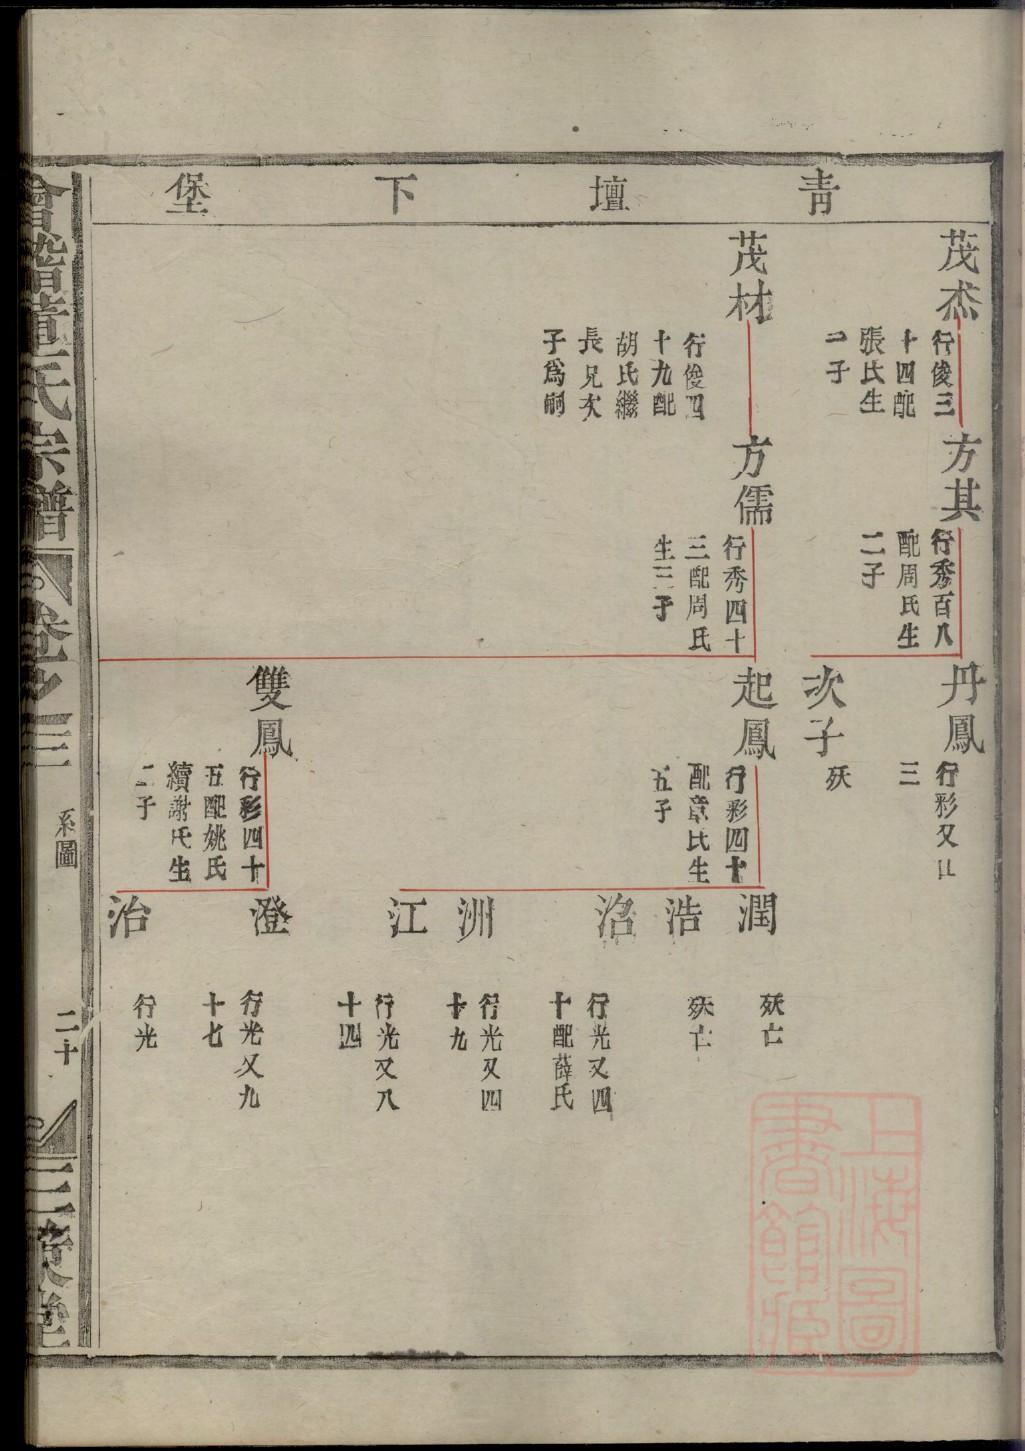 青壇下堡
茂杰
行俊三
十四配
張氏生
二子
方其
行秀百八
配周氏生
二子
丹鳳
行彩又廿
三
次子
殀
茂材
行俊四
十九配
胡氏繼
長兄次
子為嗣
方儒
行秀四十
三配周氏
生三子
起鳳
行彩四十
配章氏生
五子
潤
殀亡
浩
殀亡
行光又四
十配薛氏
洲
行光又四
十九
江
行光又八
十四
雙鳳
行彩四十
五配姚氏
續謝氏生
二子
澄
行光又九
十七
治
行光
會稽章氏宗譜
卷之三
系圖
二十
三策堂
上海圖
書館藏